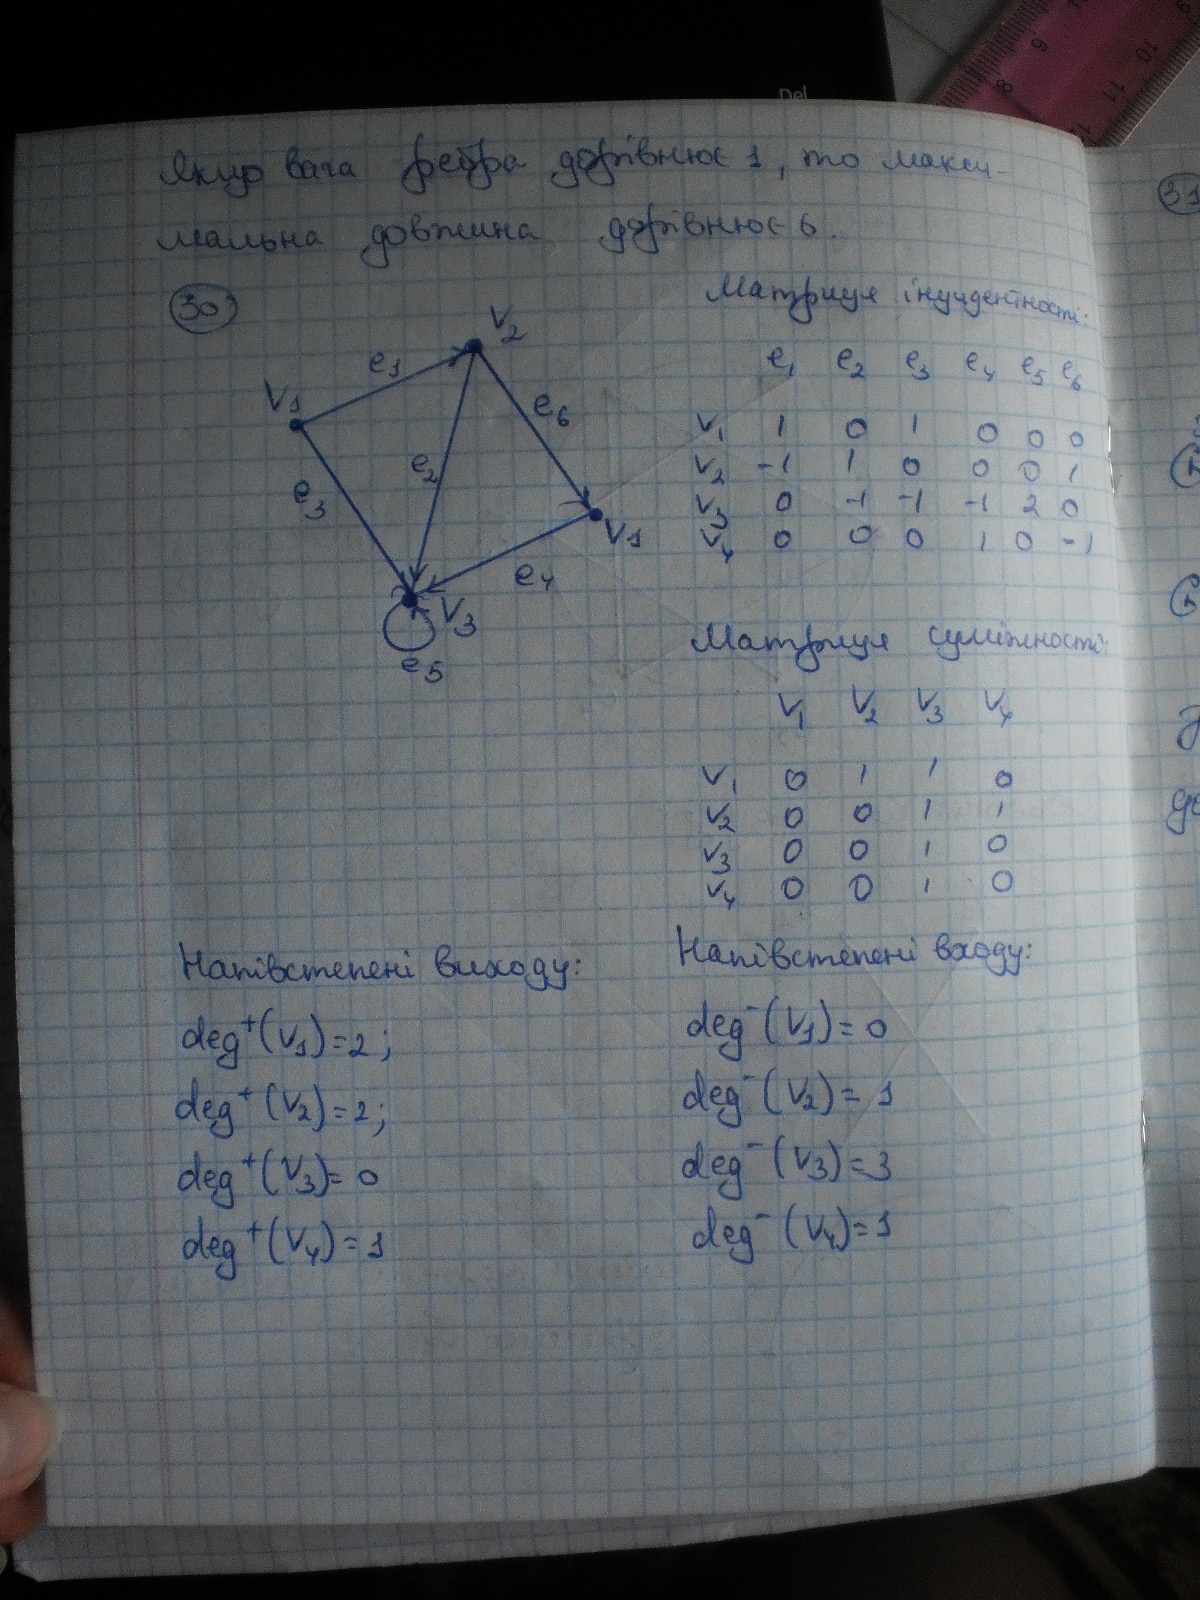 Якщо вага ребра дорівнює 1, то макси-
мальна довжина дорівнює 6.
30
V2
e1
V1
e6
e2
e3
V1
e4
V3
e5
Матриця інцидентності:
e1 e2 e3 e4 e5 e6
V1 1 0 1 0 0 0
V2 -1 1 0 0 0 1
V3 0 -1 -1 -1 2 0
V4 0 0 0 1 0 -1
Матриця суміжності:
V1 V2 V3 V4
V1 0 1 1 0
V2 0 0 1 1
V3 0 0 1 0
V4 0 0 1 0
Напівстепені виходу:
deg+(V1)=2;
deg+(V2)=2;
deg+(V3)=0
deg+(V4)=1
Напівстепені входу:
deg-(V1)=0
deg-(V2)=1
deg-(V3)=3
deg-(V4)=1
31
Del
8 9 10 11 12